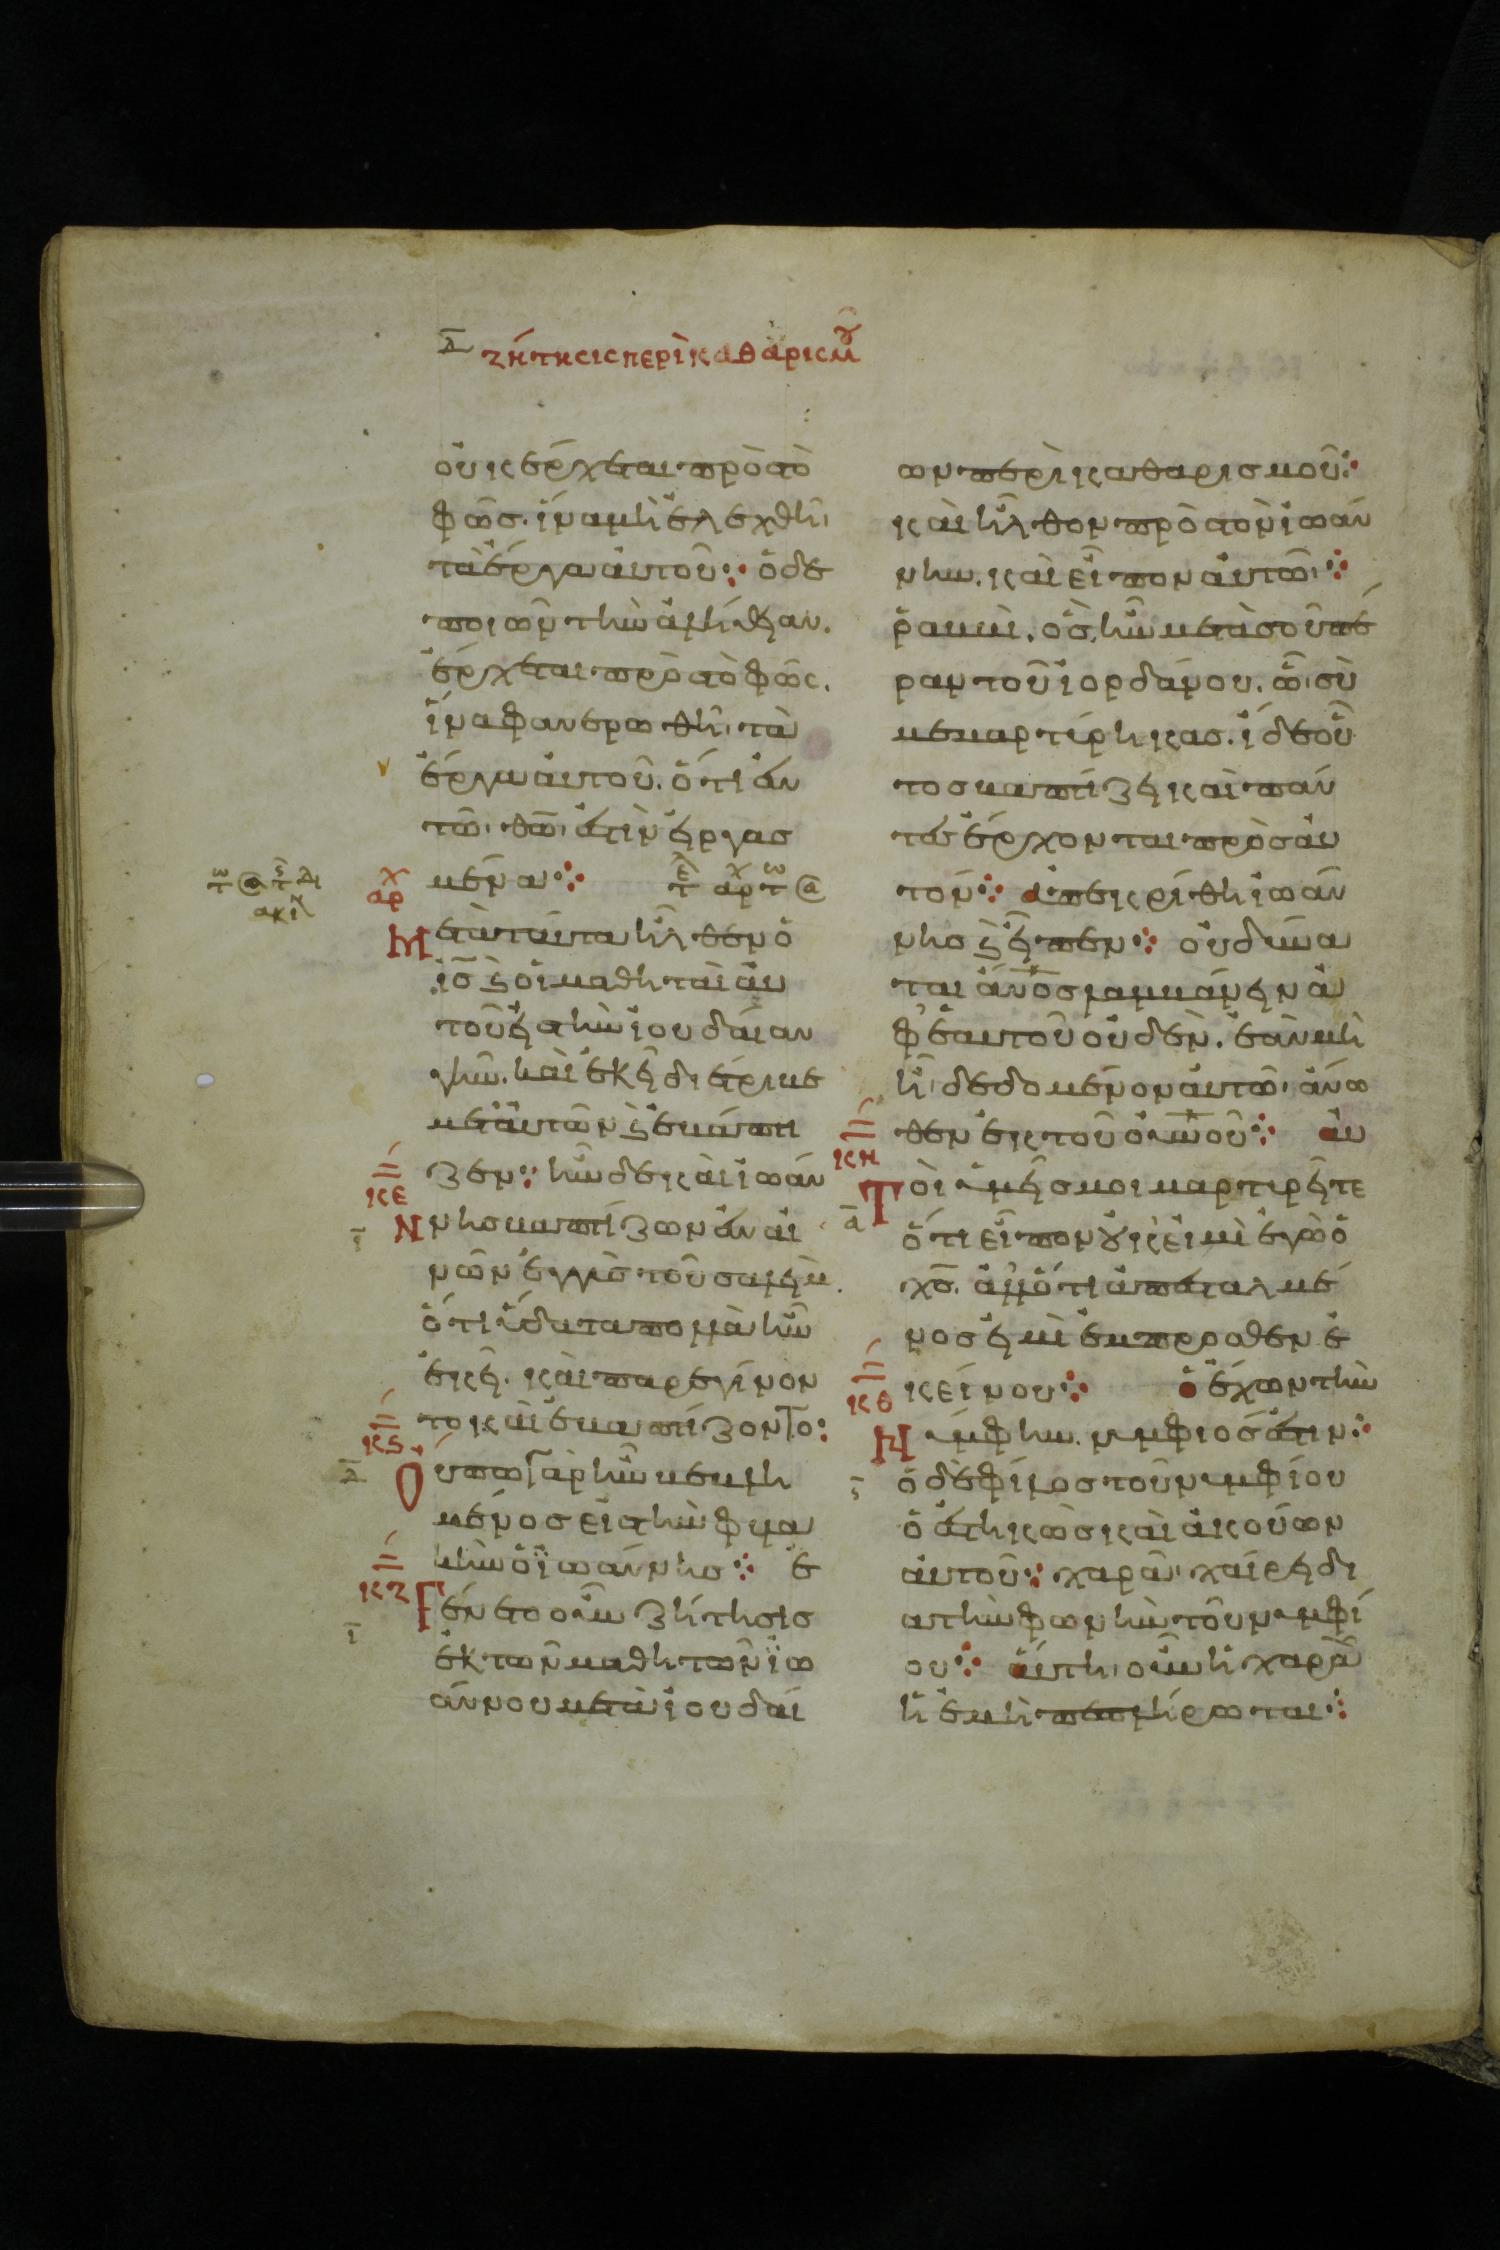 δ̅ ζήτησις περὶ καθαρισμοῦ
οὐκ ἔρχεται πρὸς τὸ
φῶς. ἵνα μὴ ἐλεχθῆ
τὰ ἔργα αὐτοῦ· ὁ δὲ
ποιῶν τὴν ἀλήθειαν.
ἔρχεται πρὸς τὸ φῶς.
ἵνα φανερωθῆ τὰ
ἔργα αὐτοῦ. ὅτι ἐν
τῶ θῶ ἐστὶν εἰργασ
μένα·
αρχ
Μετὰ ταῦτα ἦλθεν ὁ
ις̅ ϗ οἱ μαθηταὶ αὐ
τοῦ εἰς τὴν ἰουδαίαν
γῆν. καὶ ἐκεῖ διέτριβε
μετ' αὐτῶν ϗ ἐβάπτι
κε ζεν· ἦν δὲ καὶ ἰωάν
ι̅ νης βαπτίζων ἐν αἰ
νῶν ἐγγὺς τοῦ σαλείμ.
ὅτι ὕδατα πολλὰ ἦν
ἐκεῖ. καὶ παρεγίνον
κς το καὶ ἐβαπτίζοντο:
δ̅ Οὔπω γὰρ ἦν βεβλη
μένος εἰς τὴν φυλα
κὴν ὁ ἰωάννης· ἐ
κζ Γένετο οὖν ζήτησις
ι̅ ἐκ τῶν μαθητῶν ἰω
άννου μετὰ ἰουδαί
ων περὶ καθαρισμοῦ·
καὶ ἦλθον πρὸς τὸν ἰωάν
νην. καὶ εἶπον αὐτῶ·
ῥαββὶ. ὃς ἦν μετὰ σοῦ πέ
ραν τοῦ ἰορδάνου. ὧ σὺ
μεμαρτύρηκας. ἴδε οὗ
τος βαπτίζει καὶ πάν
τες ἔρχονται πρὸς αὐ
τόν· ἀπεκρίθη ἰωάν
νης ϗ εἶπεν· οὐ δύνα
ται ἄνος̅ λαμβάνειν ἀ
φ' ἑαυτοῦ οὐδὲν. ἐὰν μὴ
ἦ δεδομένον αὐτῶ ἄνω
κη θεν ἐκ τοῦ ουνου̅· αὐ
α̅ Τοὶ ὑμεῖς μοι μαρτυρεῖτε
ὅτι εἶπον οὐκ εἰμὶ ἐγὼ ὁ
χς̅. ἀλλ' ὅτι ἀπεσταλμέ
νος εἰμὶ ἔμπροσθεν ἐ
κθ κείνου· ὁ ἔχων τὴν
Νύμφην. νυμφίος ἐστιν·
ὁ δὲ φίλος τοῦ νυμφίου
ὁ ἑστηκὼς καὶ ἀκούων
αὐτοῦ· χαρᾶ χαίρει δι
α τὴν φωνὴν τοῦ νυμφί
ου· αὕτη οὖν ἡ χαρὰ
ἡ ἐμὴ πεπλήρωται·